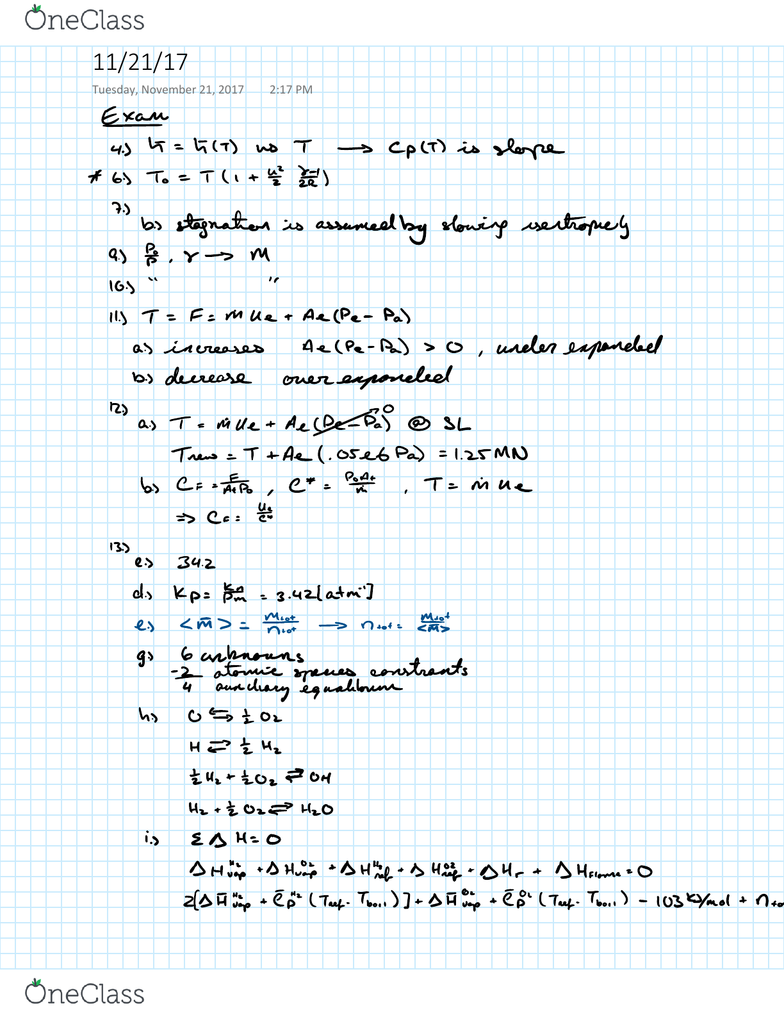 OneClass
11/21/17
Tuesday, November 21, 2017 2:17 PM
Exam
4.) h̄ = h̄(T) vs T → Cp(T) is slope
* 6.) T₀ = T(1 + u²/2 γ-1/2R)
7.)
b.) stagnation is assumed by slowing isentropicly
9.) P₀/P, γ → M
10.) " "
11.) T = F = ṁ ue + Ae(Pe - Pa)
a.) increases Ae(Pe - Pa) > 0, under expanded
b.) decrease over expanded
12.)
a.) T = ṁ ue + Ae(Pe - Pa) 0 @ SL
Tnew = T + Ae(.05e6 Pa) = 1.25 MN
b.) CF = F/AtP₀, C* = P₀At/ṁ, T = ṁ ue
⇒ CF = ue/C*
13.)
c.) 34.2
d.) Kp = Kn/Pm = 3.42 [atm⁻¹]
e.) <m̄> = mtot/ntot → ntot = mtot/<m̄>
g.) 6 unknowns
-2 atomic species constrants
4 equalibrium
h.) O ⇆ ½ O₂
H ⇄ ½ H₂
½ H₂ + ½ O₂ ⇄ OH
H₂ + ½ O₂ ⇄ H₂O
i.) Σ Δ H = 0
ΔH vap H₂ + ΔH vap O₂ + ΔH ref H₂ + ΔH ref O₂ + ΔHr + ΔH flame = 0
2[ΔH̄ vap H₂ + C̄p H₂ (Tref - Tboil)] + ΔH̄ vap O₂ + C̄p O₂ (Tref - Tboil) - 103 kJ/mol + nto
OneClass